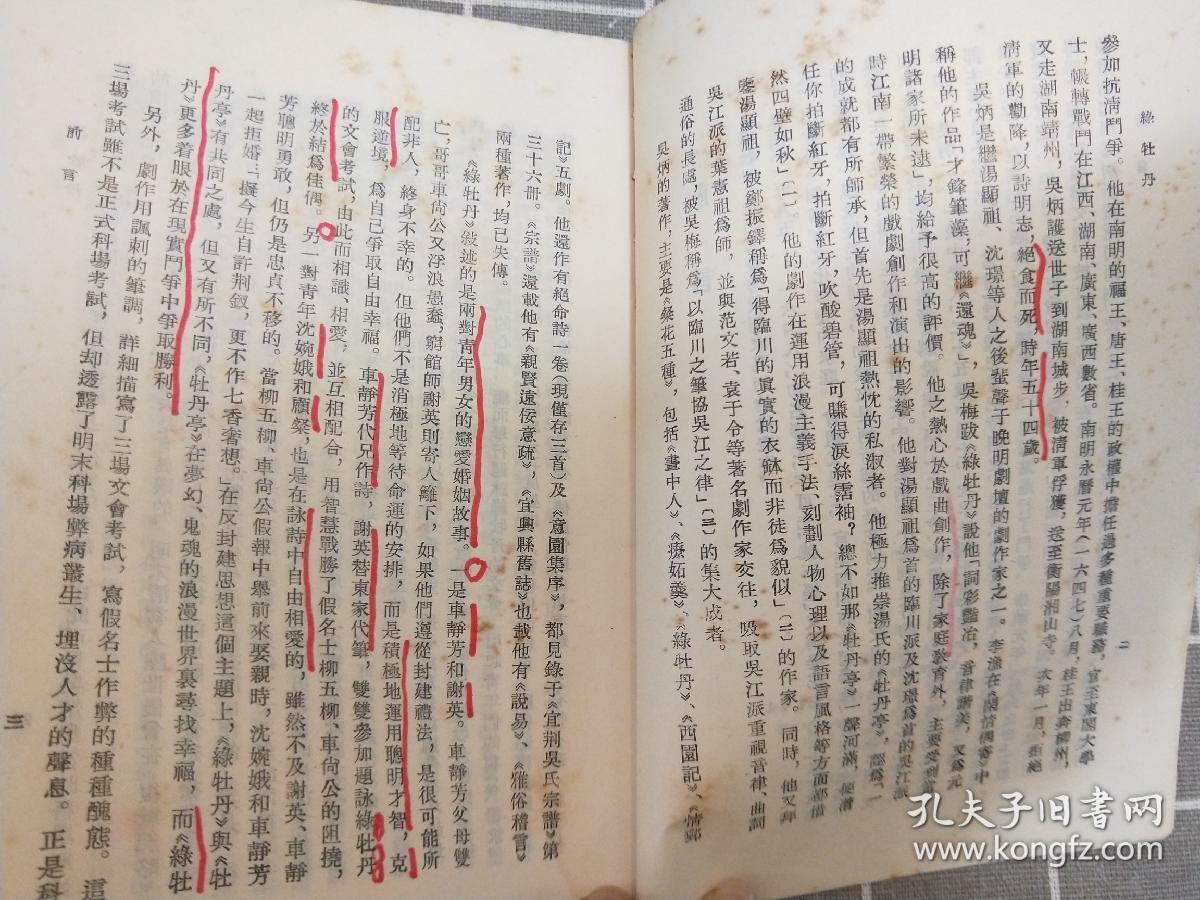 綠牡丹
二
參加抗淸鬥爭。他在南明的福王、唐王、桂王的政權中擔任過多種重要職務，官至東閣大學
士，輾轉戰鬥在江西、湖南、廣東、廣西數省。南明永曆元年（一六四七）八月，桂王出奔柳州，
又走湖南靖州，吳炳護送世子到湖南城步，被淸軍俘獲，送至衡陽湘山寺。次年一月，拒絕
淸軍的勸降，以詩明志，絕食而死，時年五十四歲。
吳炳是繼湯顯祖、沈璟等人之後蜚聲于晚明劇壇的劇作家之一。李漁在《閑情偶寄》中
稱他的作品「才鋒筆藻，可繼《還魂》」，吳梅跋《綠牡丹》說他「詞彩豔冶，音律諧美，又爲元
明諸家所未逮」，均給予很高的評價。他之熱心於戲曲創作，除了家庭敎育外，主要受到當
時江南一帶繁榮的戲劇創作和演出的影響。他對湯顯祖爲首的臨川派及沈璟爲首的吳江派
的成就都有所師承，但首先是湯顯祖熱忱的私淑者。他極力推崇湯氏的《牡丹亭》，認爲「一
任你拍斷紅牙，拍斷紅牙，吹酸碧管，可賺得淚絲霑袖？總不如那《牡丹亭》一聲河滿，便潸
然四壁如秋」〔一〕。他的劇作在運用浪漫主義手法、刻劃人物心理以及語言風格等方面都借
鑒湯顯祖，被鄭振鐸稱爲「得臨川的眞實的衣缽而非徒爲貌似」〔二〕的作家。同時，他又拜
吳江派的葉憲祖爲師，並與范文若、袁于令等著名劇作家交往，吸取吳江派重視音律、曲詞
通俗的長處，被吳梅稱爲「以臨川之筆協吳江之律」〔三〕的集大成者。
吳炳的著作，主要是《粲花五種》，包括《畫中人》、《療妬羹》、《綠牡丹》、《西園記》、《情郵
記》五劇。他還作有絕命詩一卷（現僅存三首）及《意園集序》，都見錄于《宜荆吳氏宗譜》第
三十六册。《宗譜》還載他有《親賢遠佞意疏》，《宜興縣舊誌》也載他有《說易》、《雅俗稽言》
兩種著作，均已失傳。
《綠牡丹》敍述的是兩對青年男女的戀愛婚姻故事。一是車靜芳和謝英。車靜芳父母雙
亡，哥哥車尙公又浮浪愚蠢，窮館師謝英則寄人籬下，如果他們遵從封建禮法，是很可能所
配非人，終身不幸的。但他們不是消極地等待命運的安排，而是積極地運用聰明才智，克
服逆境，爲自己爭取自由幸福。車靜芳代兄作詩，謝英替東家代筆，雙雙參加題詠綠牡丹
的文會考試，由此而相識、相愛，並互相配合，用智慧戰勝了假名士柳五柳、車尙公的阻撓，
終於結爲佳偶。另一對青年沈婉娥和顧粲，也是在詠詩中自由相愛的，雖然不及謝英、車靜
芳聰明勇敢，但仍是忠貞不移的。當柳五柳、車尙公假報中舉前來娶親時，沈婉娥和車靜芳
一起拒婚：「擬今生自許荆釵，更不作七香奢想。」在反封建思想這個主題上，《綠牡丹》與《牡
丹亭》有共同之處，但又有所不同，《牡丹亭》在夢幻、鬼魂的浪漫世界裏尋找幸福，而《綠牡
丹》更多着眼於在現實鬥爭中爭取勝利。
另外，劇作用諷刺的筆調，詳細描寫了三場文會考試，寫假名士作弊的種種醜態。這
三場考試雖不是正式科場考試，但却透露了明末科場弊病叢生、埋沒人才的聲息。正是科
前言
三
孔夫子旧书网
www.kongfz.com